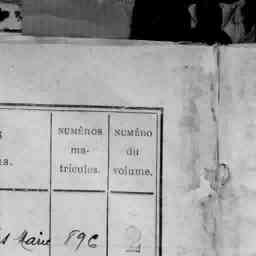 NUMÉROS
ma-
tricules.
NUMÉRO
du
volume.
Marie 896 2